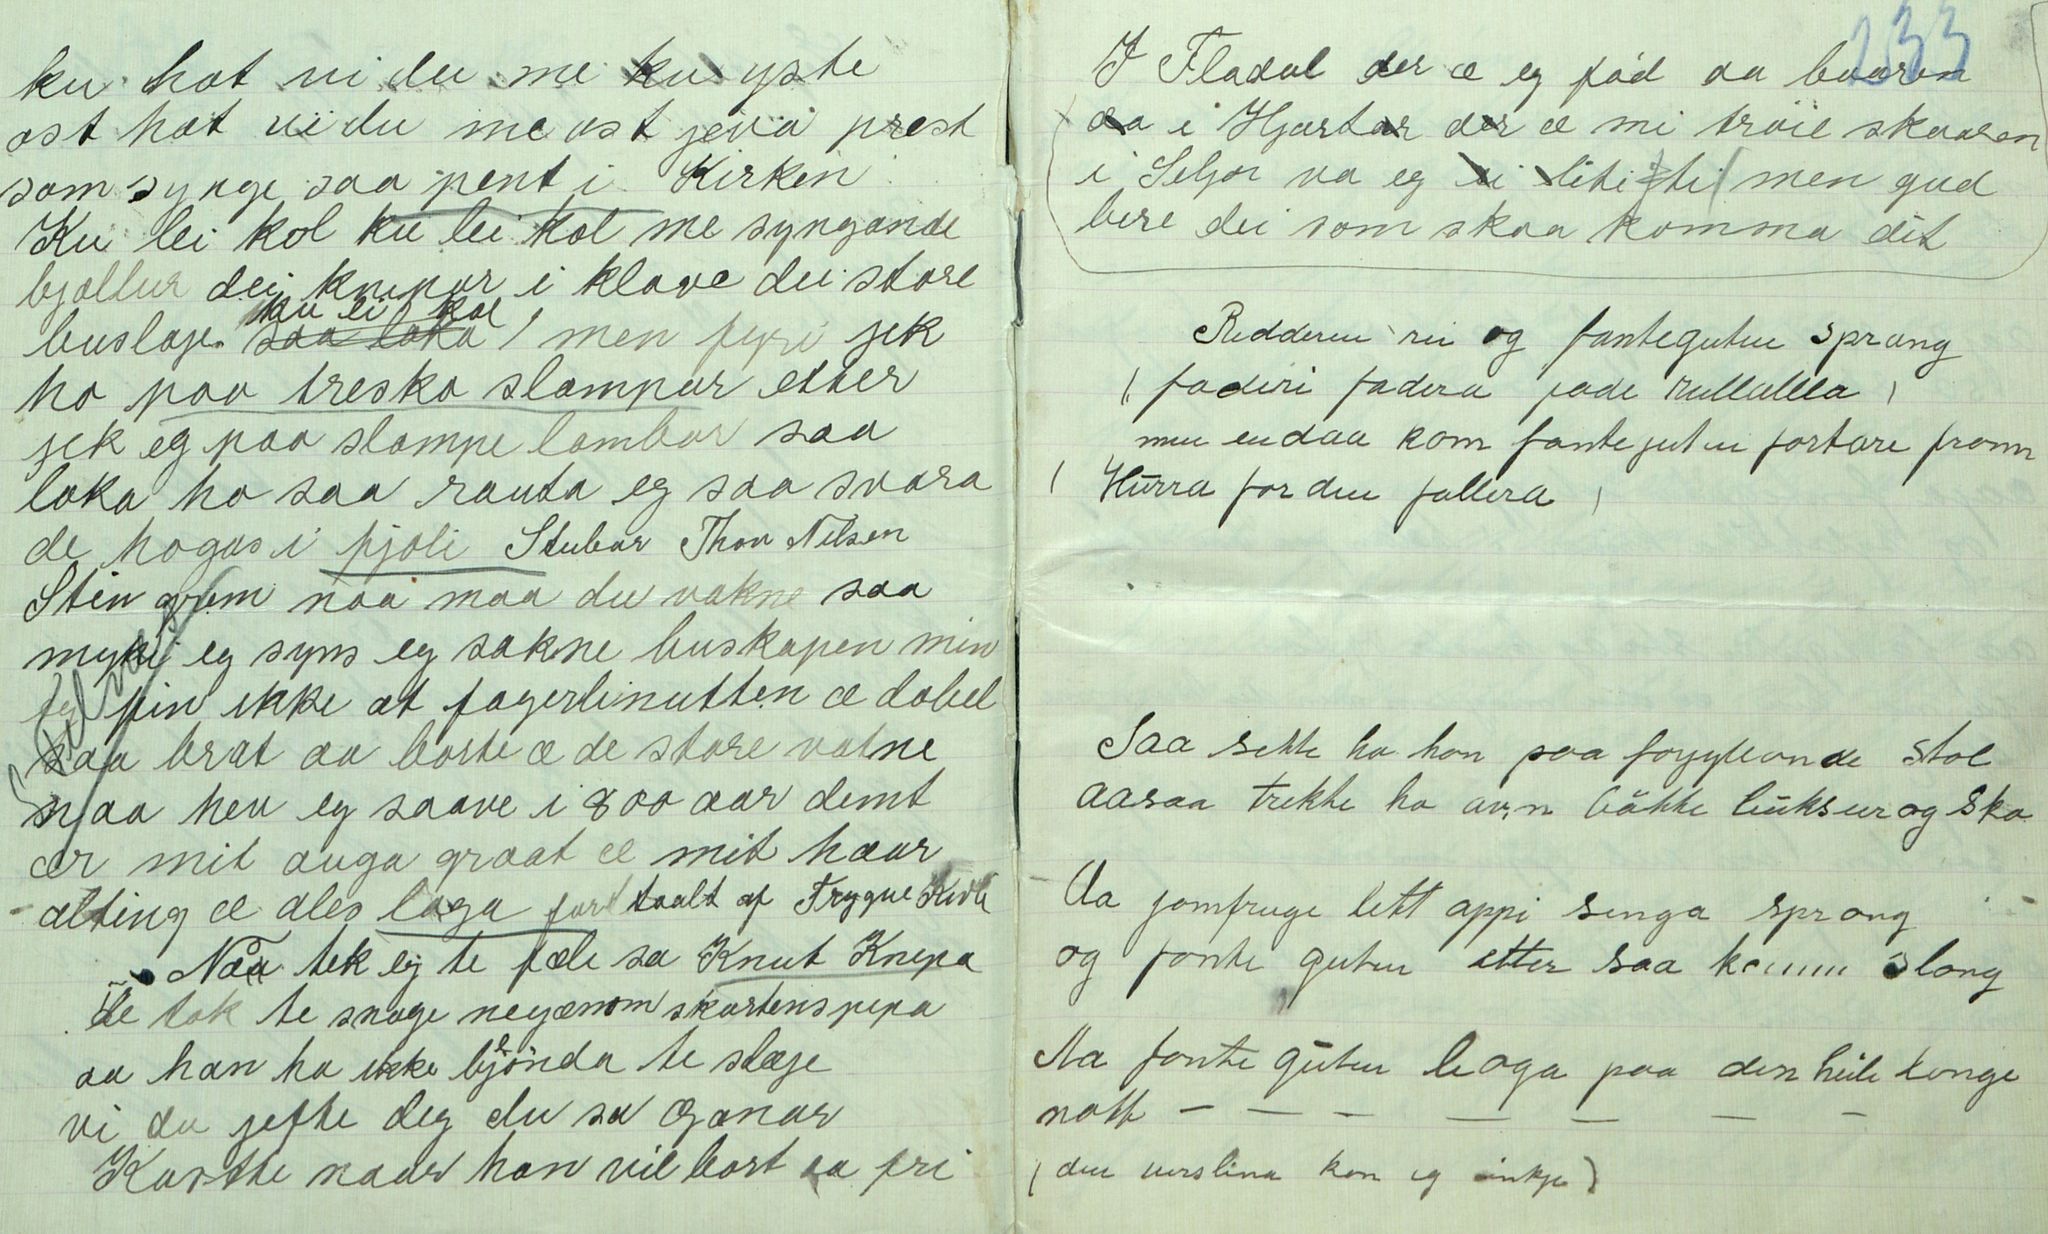 ku hat vi du me ku yste
ost hat vi du me ost jeva prest
som synge saa pent i Kirken
Ku lei kol ku lei kol me syngande
bjøllur dei knepar i klave dei store
buslaje ku lei kol
saa loka / men fyri jek
ho paa tresko slampar etter
jek eg paa slampe lambar saa
loka ho saa rauta eg saa svara
de hogas i fjøli Stubar Thov Nilsen
Stin grøm naa maa du vakne saa
mykj eg syns eg sakne buskapen min
fin ikke at fagerlinutten æ dalel
saa brat aa borte æ de store vatne
naa hev eg saave i 800 aar dimt
ær mit auga graat æ mit haar
alting æ ales laga fortaalt af Trygve Kivle
Naa tek eg te fæle sa Knut Knepa
de tok te snoge negænom skortenspipa
aa han ha ikke bjønda te slæje
vi du jefte deg du sa Gonar
Kasthe naar han vil bort aa fri
233
I Fladal der æ eg fød aa baaren
aa i Hjartar der æ mi trøie skaaren
i Seljor va eg liti ti men gud
bere dei som skaa komma dit
Ridderen rei og fanteguten sprang
( faderi fadera fade rullalla )
men endaa kom fantejuten fortare fram
( Hurra for den fallera )
Saa sette ho han paa forgyllande stol
aasaa trekte ho av,n båtte buksur og sko
Aa jomfruge lett oppi senga sprang
og fante guten etter saa kaam slang
Aa fante guten laaga paa den heile lange
natt — — — — — — —
( den verslina kan eg inkje )